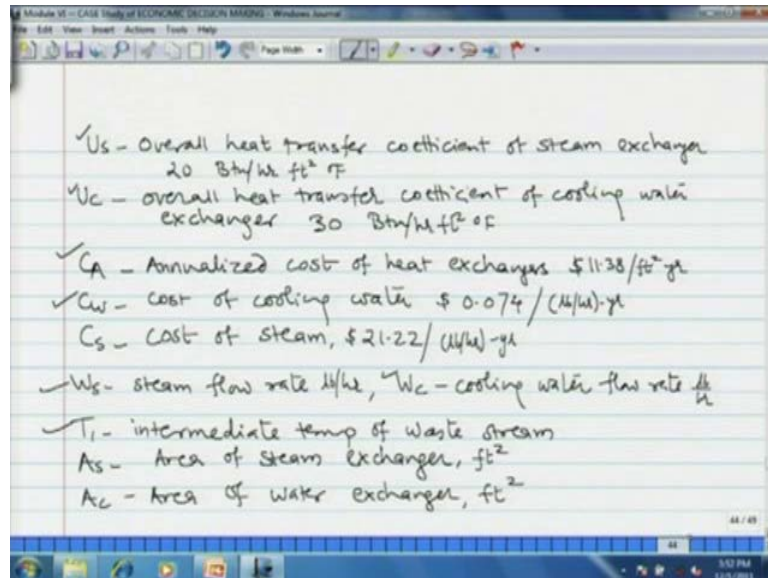 Module VI - CASE Study of ECONOMIC DECISION MAKING - Windows Journal
File Edit View Insert Actions Tools Help
Page Width
✓Us - Overall heat transfer coefficient of steam exchanger
20 Btu/hr ft² °F
✓Uc - overall heat transfer coefficient of cooling water
exchanger 30 Btu/hr ft² °F
✓CA - Annualized cost of heat exchangers $11.38/ft² yr
✓Cw - cost of cooling water $ 0.074 / (lb/hr)-yr
Cs - cost of steam, $21.22/ (lb/hr)-yr
✓Ws - steam flow rate lb/hr, ✓Wc - cooling water flow rate lb/h
✓T1 - intermediate temp of waste stream
As - Area of steam exchanger, ft²
Ac - Area of water exchanger, ft²
44 / 49
44
3:52 PM